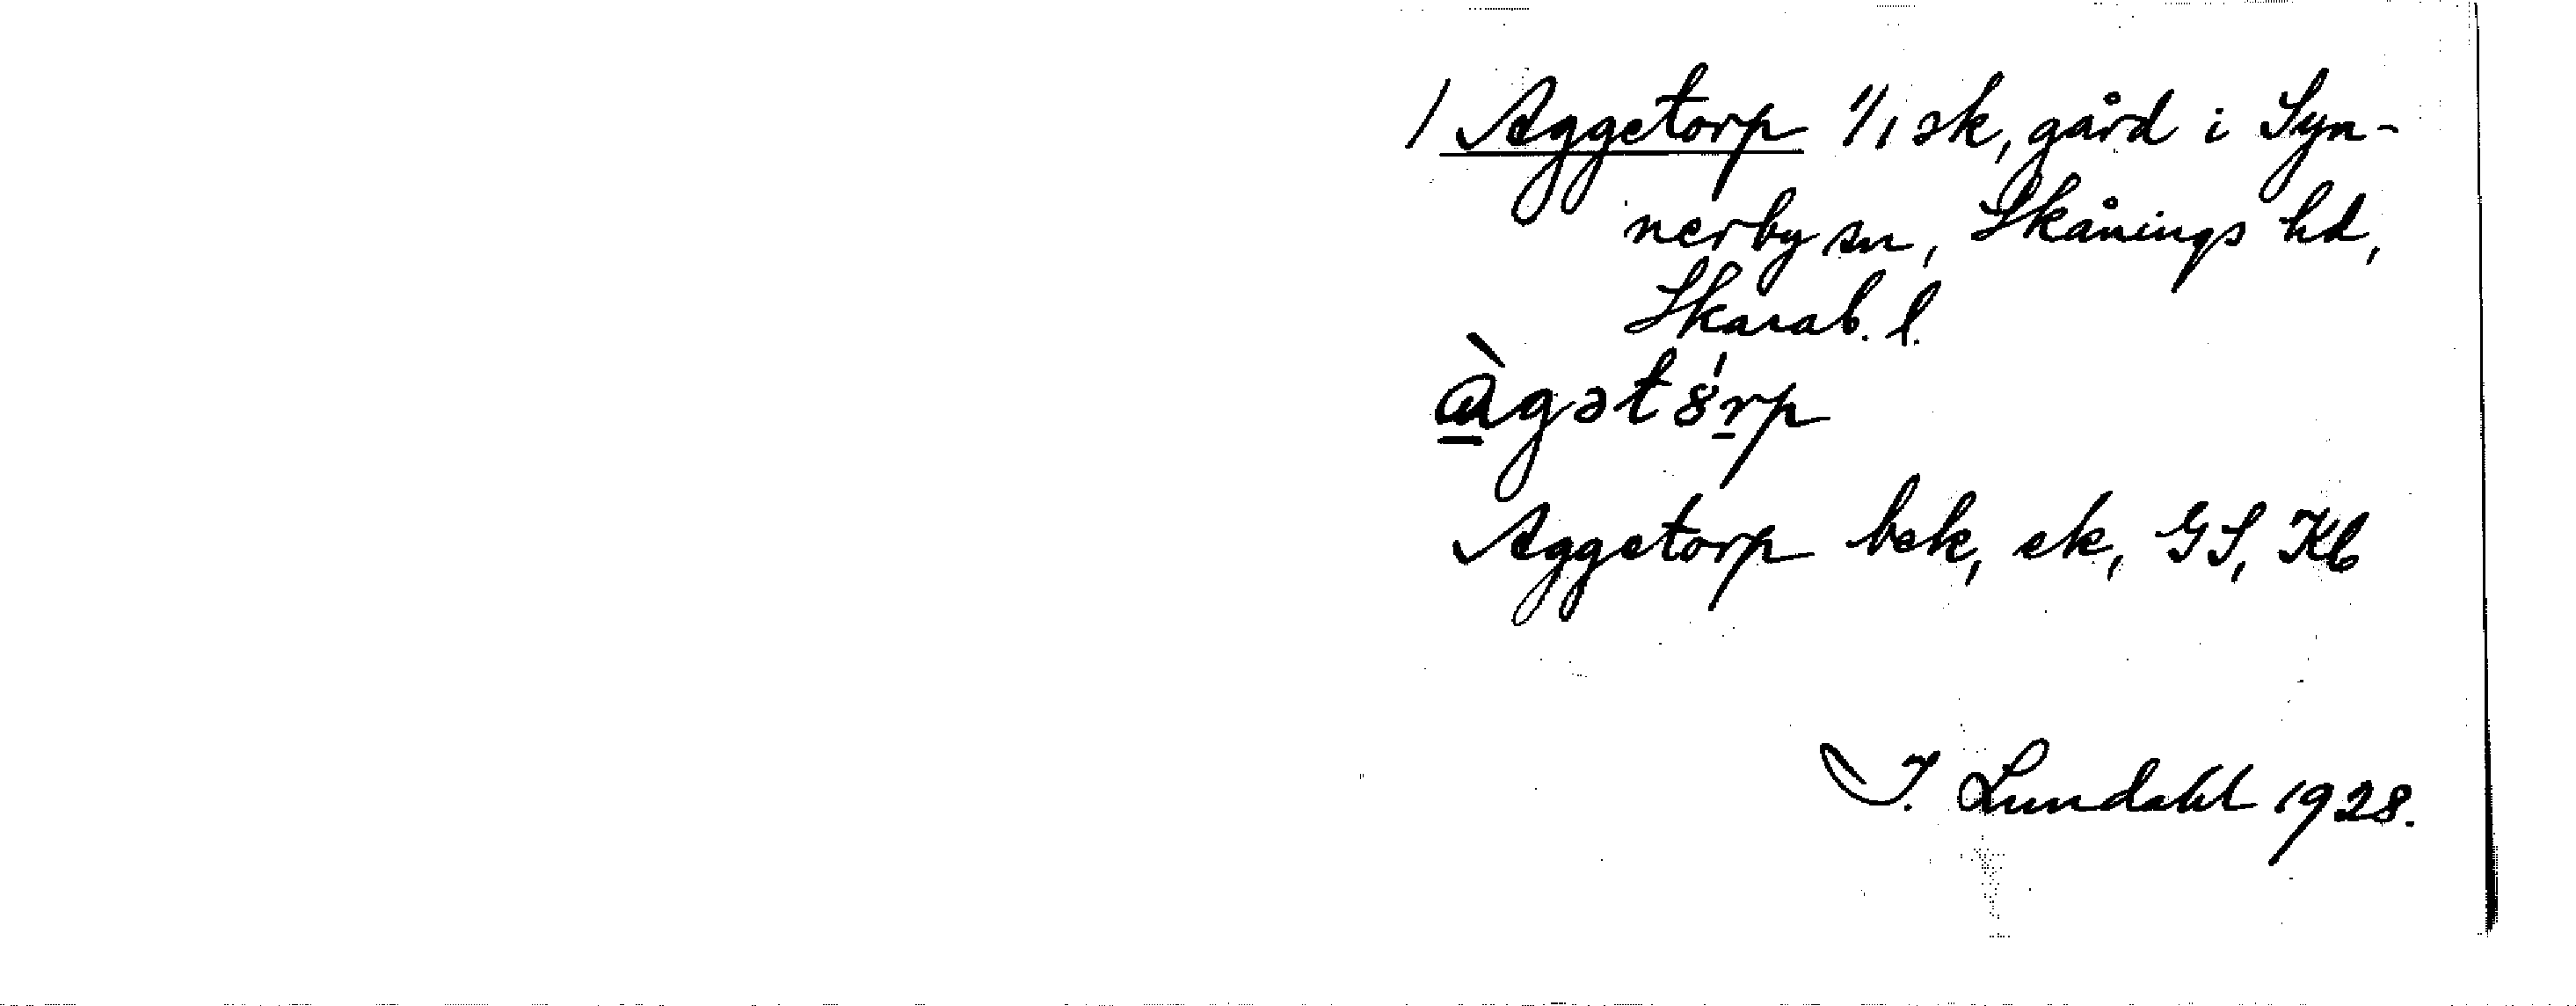 / Aggetorp 1/1 sk, gård i Syn-
nerby sn, Skånings hd,
Skarab. l.
àgət8'rp
Aggetorp bek, ek, GS, Kb
I. Lundahl 1928.